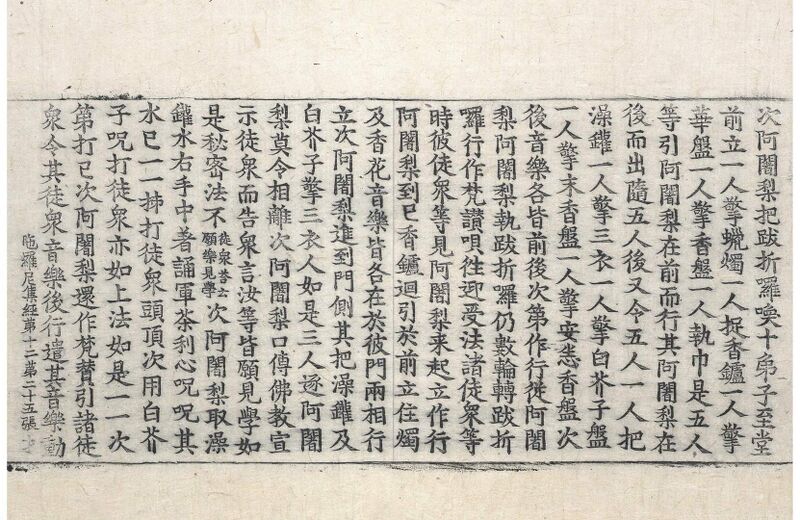 次阿闍梨把跋折羅喚十弟子至堂
前立一人擎蠟燭一人捉香鑪一人擎
華盤一人擎香盤一人執巾是五人
等引阿闍梨在前而行其阿闍梨在
後而出隨五人後又令五人一人把
澡鑵一人擎三衣一人擎白芥子盤
一人擎末香盤一人擎安悉香盤次
後音樂各皆前後次第作行從阿闍
梨阿闍梨執跋折羅仍數輪轉跋折
羅行作梵讚唄往迎受法諸徒衆等
時彼徒衆等見阿闍梨来起立作行
阿闍梨到已香鑪迴引於前立住燭
及香花音樂皆各在於彼門兩相行
立次阿闍梨進到門側其把澡鑵及
白芥子擎三衣人如是三人逐阿闍
梨莫令相離次阿闍梨口傳佛教宣
示徒衆而告衆言汝等皆願見學如
是秘密法不徒衆荅云願樂見學次阿闍梨取澡
鑵水右手中著誦軍茶利心呪呪其
水已一一㧊打徒衆頭頂次用白芥
子呪打徒衆亦如上法如是一一次
第打已次阿闍梨還作梵賛引諸徒
衆令其徒衆音樂後行遣其音樂動
陁羅尼集經第十二第二十五張